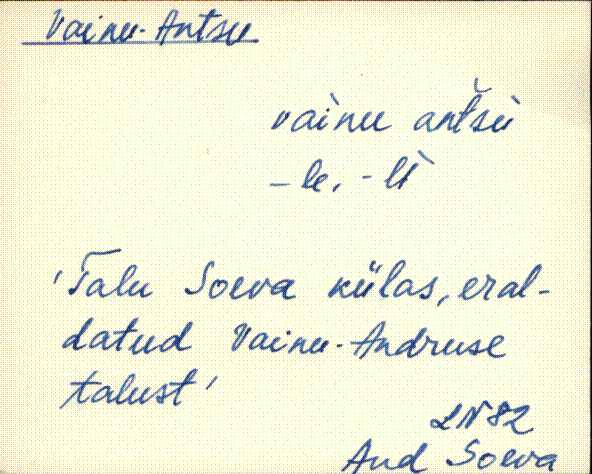 Vainu-Antsu
vàinu antšù
-le, -lt̀
'Talu Soeva külas, eral-
datud Vainu-Andruse
talust'
LN 82
Aud Soeva